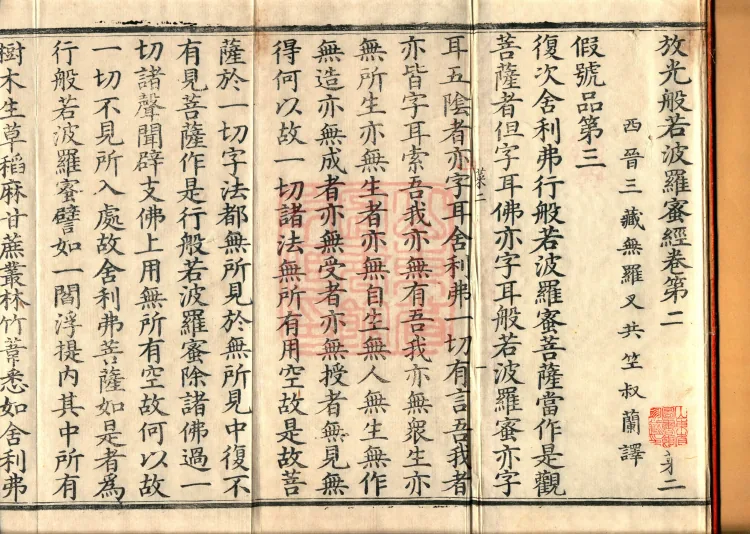 放光般若波羅蜜經卷第二
西晉三藏無羅叉共竺叔蘭譯
假號品第三
復次舍利弗行般若波羅蜜菩薩當作是觀
菩薩者但字耳佛亦字耳般若波羅蜜亦字
耳五陰者亦字耳舍利弗一切有言吾我者
亦皆字耳索吾我亦無有吾我亦無衆生亦
無所生亦無生者亦無自生無人無生無作
無造亦無成者亦無受者亦無授者無見無
得何以故一切諸法無所有用空故是故菩
薩於一切字法都無所見於無所見中復不
有見菩薩作是行般若波羅蜜除諸佛過一
切諸聲聞辟支佛上用無所有空故何以故
一切不見所入處故舍利弗菩薩如是者爲
行般若波羅蜜譬如一閻浮提内其中所有
樹木生草稻麻甘蔗叢林竹葦悉如舍利弗
菜二